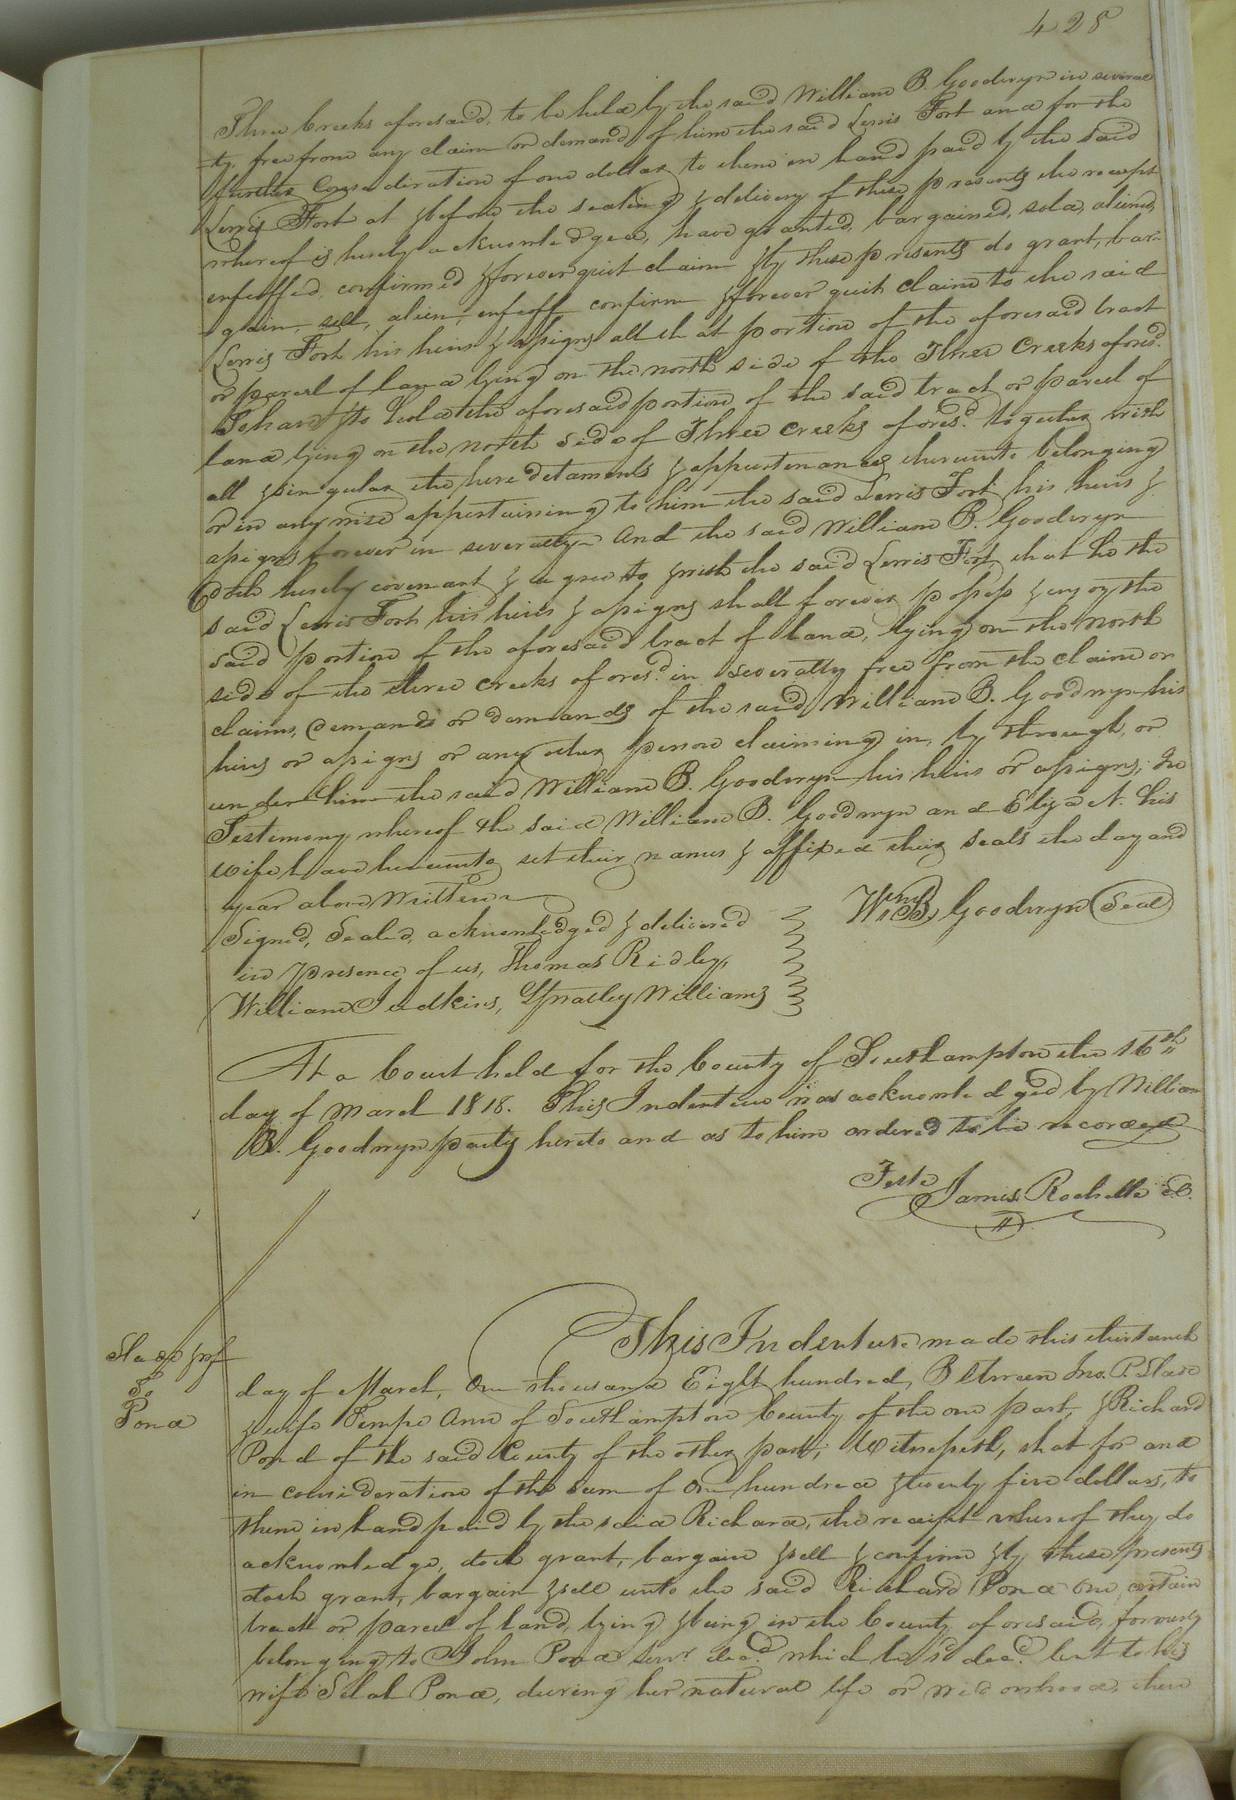 428
Three Creeks aforesaid, to be held by the said William B. Goodwyn in several
-ty, free from any claim or demand of him the said Lewis Fort and for the
further Consideration of one dollar to them in hand paid by the said
Lewis Fort at & before the sealing & delivery of these presents the receipt
whereof is hereby acknowledged, have granted, bargained, sold, aliened,
enfeoffed, confirmed & forever quit claim & by these presents do grant, bar-
-gain, sell, alien, enfeoff, confirm & forever quit claim to the said
Lewis Fort his heirs & assigns all that portion of the aforesaid tract
or parcel of land lying on the north side of the Three Creeks afores.d
To have & to hold the aforesaid portion of the said tract or parcel of
land lying on the north side of Three Creeks afores.d together with
all & singular the hereditaments & appurtenances thereunto belonging
or in any wise appertaining to him the said Lewis Fort his heirs &
assigns forever in severalty And the said William B. Goodwyn
doth hereby covenant & agree to & with the said Lewis Fort that he the
said Lewis Fort his heirs & assigns shall forever possess & enjoy the
said portion of the aforesaid tract of land, lying on the north
side of the three creeks afores.d in severalty free from the claim or
claims, demands or demands of the said William B. Goodwyn his
heirs or assigns or any other person claiming in, by through, or
under him the said William B. Goodwyn his heirs or assigns, In
Testimony whereof the said William B. Goodwyn and Eliza N. his
wife have hereunto set their names & affixed their seals the day and
year above written
Wm. B. Goodwyn (Seal)
Signed, Sealed, acknowledged & delivered
in presence of us, Thomas Ridley,
William Judkins, Spratley Williams
At a Court held for the County of Southampton the 16th
day of March 1818. This Indenture was acknowledged by William
B. Goodwyn party hereto and as to him ordered to be recorded
Teste
James Rochelle CC.
Slade & wf
To
Pond
This Indenture made this thirteenth
day of March, One thousand Eight hundred, Between Jno. P. Slade
& wife Tempe Ann of Southampton County of the one part, & Richard
Pond of the said County of the other part, Witnesseth, that for and
in consideration of the sum of One hundred & twenty five dollars, to
them in hand paid by the said Richard, the receipt whereof they do
acknowledge, doth grant, bargain & sell & confirm & by these presents
doth grant, bargain & sell unto the said Richard Pond one certain
tract or parcel of land, lying & being in the County aforesaid, formerly
belonging to John Pond Senr. dec.d which he s.d dec.d lent to his
wife Selah Pond, during her natural life or widowhood, then